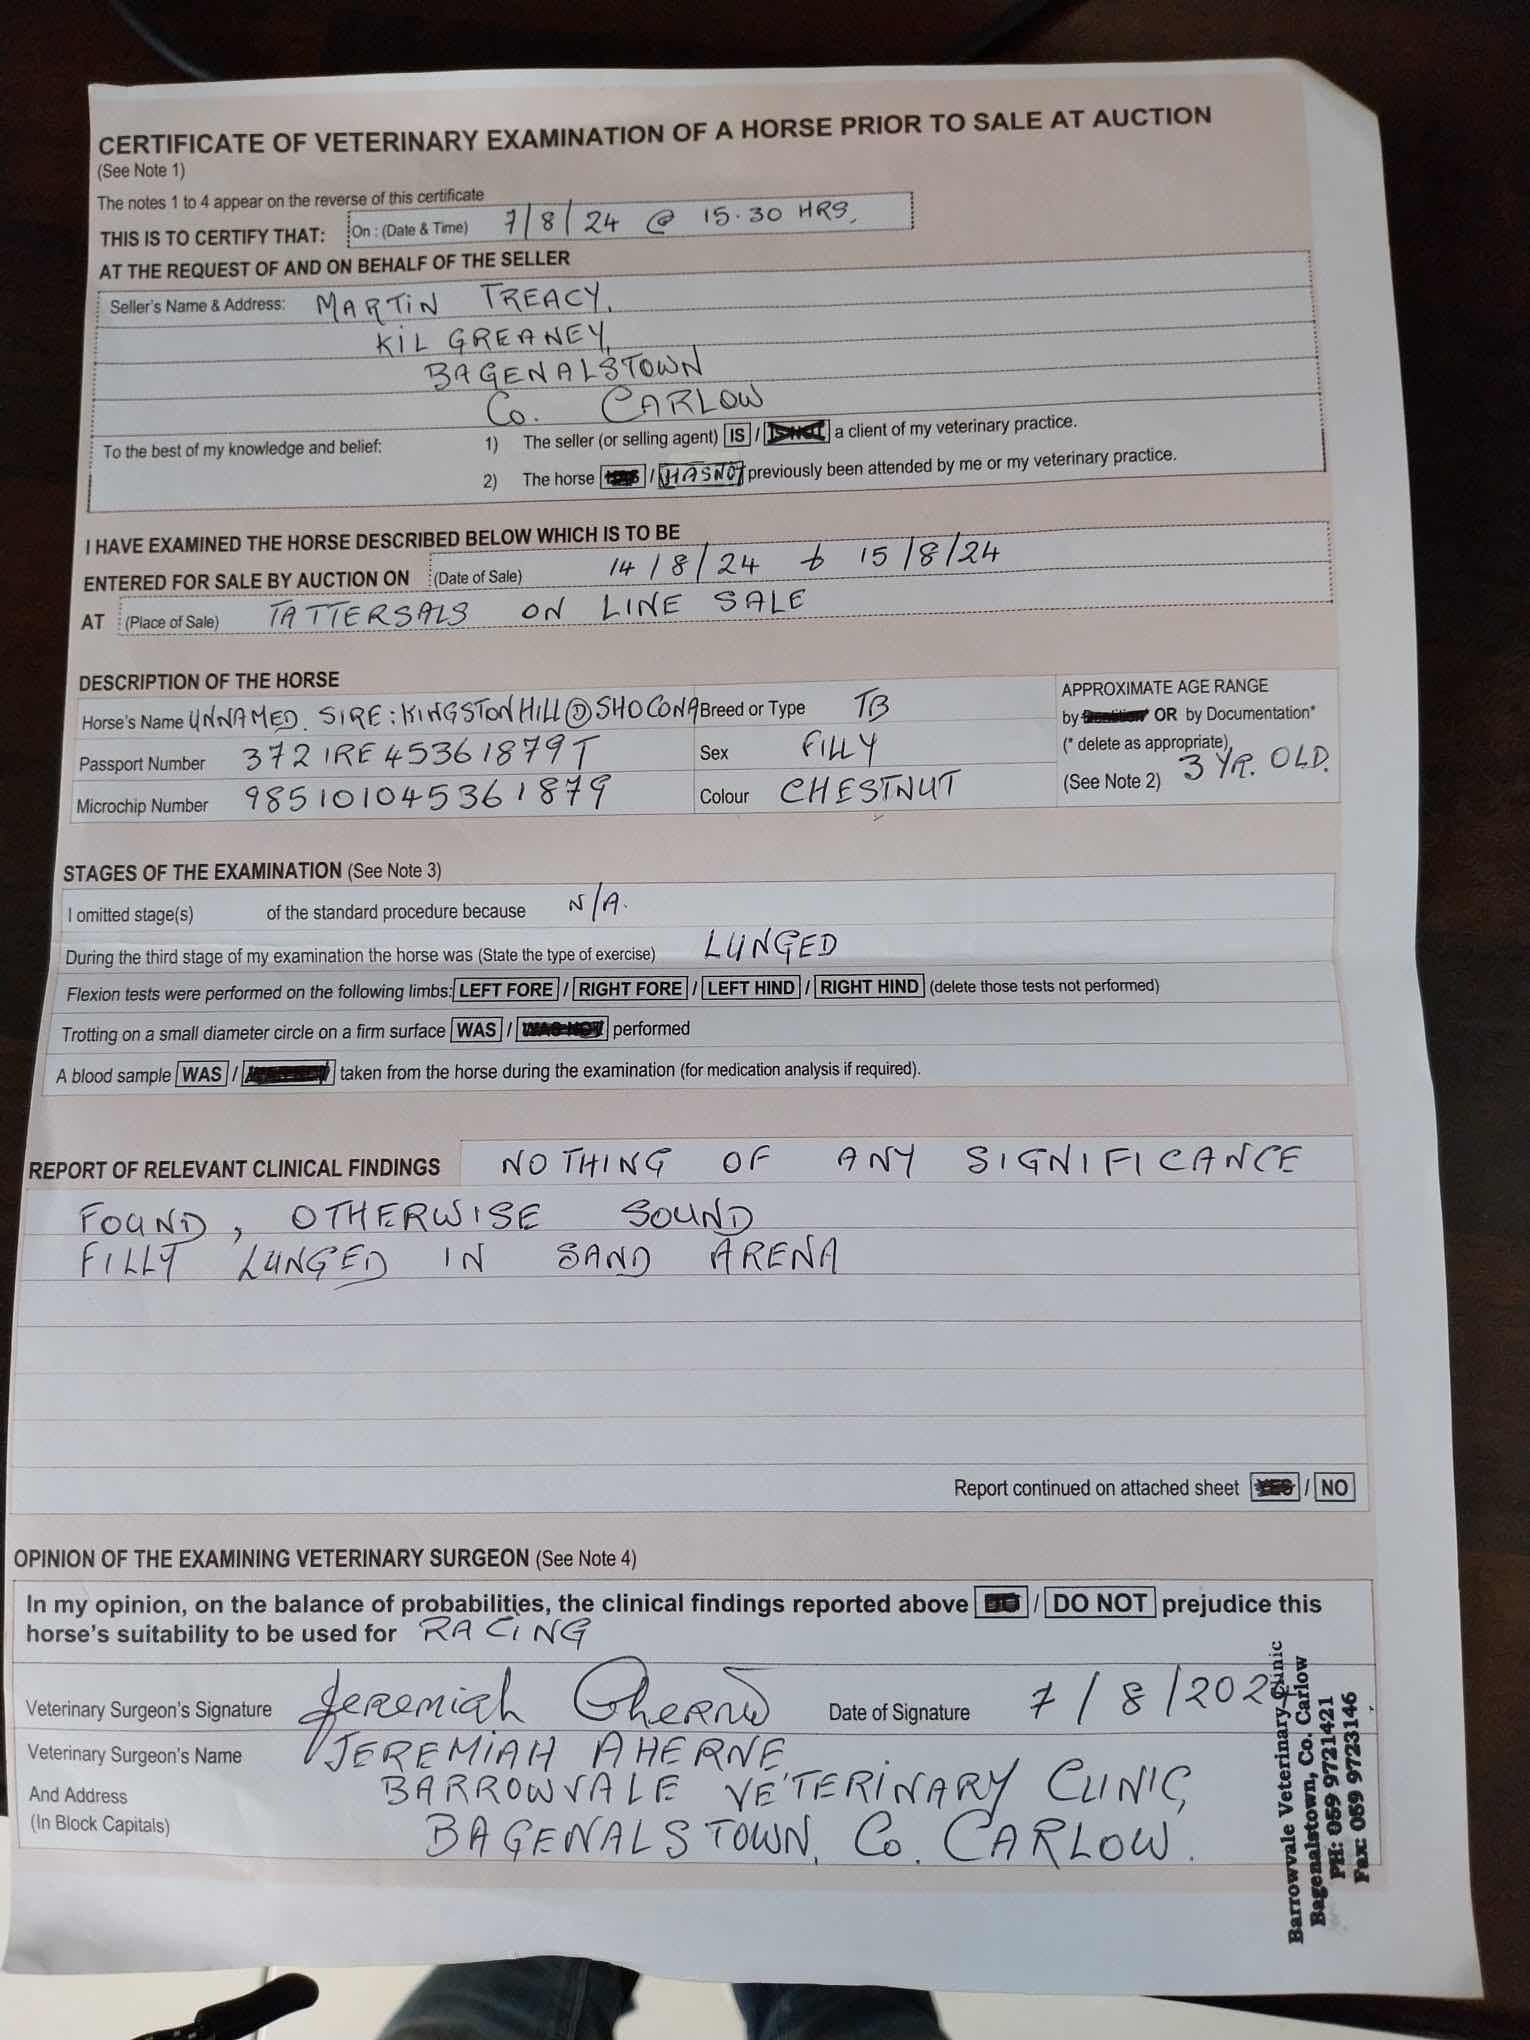 CERTIFICATE OF VETERINARY EXAMINATION OF A HORSE PRIOR TO SALE AT AUCTION
(See Note 1)
The notes 1 to 4 appear on the reverse of this certificate
THIS IS TO CERTIFY THAT: On : (Date & Time) 7/8/24 @ 15.30 HRS,
AT THE REQUEST OF AND ON BEHALF OF THE SELLER
Seller's Name & Address: MARTIN TREACY,
KILGREANEY,
BAGENALSTOWN
Co. CARLOW
To the best of my knowledge and belief: 1) The seller (or selling agent) IS / IS NOT a client of my veterinary practice.
2) The horse HAS / HAS NOT previously been attended by me or my veterinary practice.
I HAVE EXAMINED THE HORSE DESCRIBED BELOW WHICH IS TO BE
ENTERED FOR SALE BY AUCTION ON (Date of Sale) 14/8/24 to 15/8/24
AT (Place of Sale) TATTERSALS ON LINE SALE
DESCRIPTION OF THE HORSE
Horse's Name UNNAMED. SIRE: KINGSTON HILL (D) SHOCONA Breed or Type TB
APPROXIMATE AGE RANGE
by Dentition* OR by Documentation*
Passport Number 372 IRE 45361879T Sex FILLY
(* delete as appropriate)
(See Note 2) 3 YR. OLD.
Microchip Number 985101045361879 Colour CHESTNUT
STAGES OF THE EXAMINATION (See Note 3)
I omitted stage(s) of the standard procedure because N/A.
During the third stage of my examination the horse was (State the type of exercise) LUNGED
Flexion tests were performed on the following limbs: LEFT FORE / RIGHT FORE / LEFT HIND / RIGHT HIND (delete those tests not performed)
Trotting on a small diameter circle on a firm surface WAS / WAS NOT performed
A blood sample WAS / taken from the horse during the examination (for medication analysis if required).
REPORT OF RELEVANT CLINICAL FINDINGS NOTHING OF ANY SIGNIFICANCE
FOUND, OTHERWISE SOUND
FILLY LUNGED IN SAND ARENA
Report continued on attached sheet YES / NO
OPINION OF THE EXAMINING VETERINARY SURGEON (See Note 4)
In my opinion, on the balance of probabilities, the clinical findings reported above DO / DO NOT prejudice this
horse's suitability to be used for RACING
Veterinary Surgeon's Signature Jeremiah Aherne Date of Signature 7/8/2024
Veterinary Surgeon's Name JEREMIAH AHERNE
And Address BARROWVALE VETERINARY CLINIC,
(In Block Capitals) BAGENALSTOWN, Co. CARLOW.
Barrowvale Veterinary Clinic
Bagenalstown, Co. Carlow
PH: 059 9721421
Fax: 059 9723146